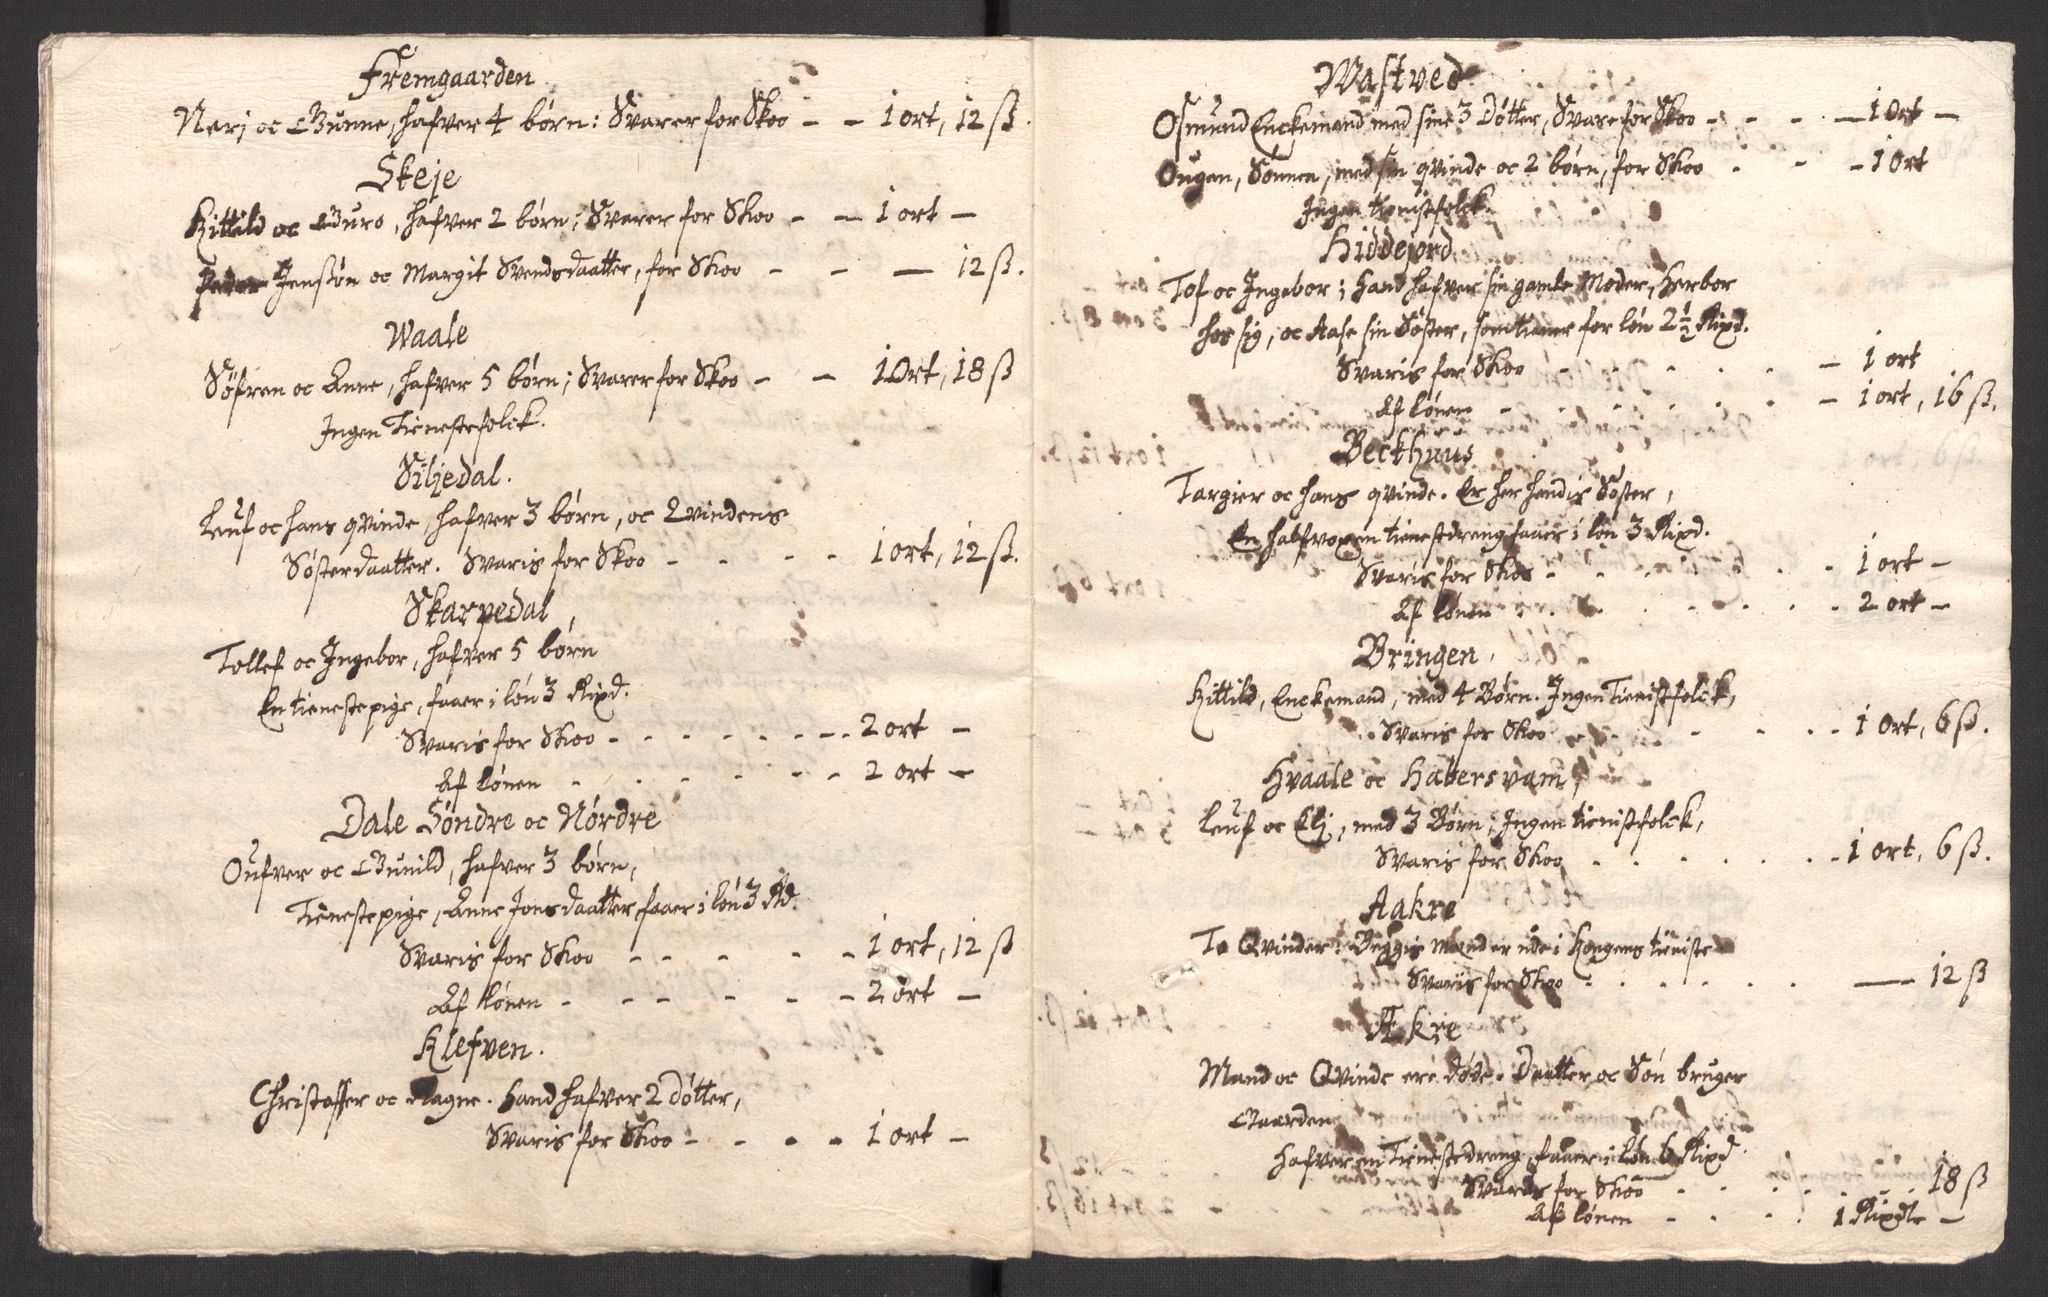 Fremgaarden
Nerj oc Gunne, hafver 4 børn: Svarer for Skoo - - 1 ort, 12 ß.
Skeje
Kittild oc Guro, hafver 2 børn; Svarer for Skoo - - 1 ort -
Peder Jenssøn oc Margit Svendsdaatter, for Skoo - - - 12 ß.
Waale
Søfren oc Anne, hafver 5 børn; Svarer for Skoo - - 1 Ort, 18 ß
Ingen Tienestefolck.
Siljedal.
Leuf oc hans qvinde, hafver 3 børn, oc Qvindens
Søsterdaatter. Svaris for Skoo - - - - 1 ort, 12 ß.
Skarpedal,
Tollef oc Ingebor, hafver 5 børn
En tienestepige, faaer i løn 3 Rixd.
Svaris for Skoo - - - - - - - 2 ort -
Af Lønen - - - - - - 2 ort -
Dale Søndre oc Nørdre
Oufver oc Gunild, hafver 3 børn,
Tienestepige, Anne Jonsdaatter, faaer i løn 3 Rd.
Svaris for Skoo - - - - - 1 ort, 12 ß
Af Lønen - - - - - - 2 ort -
Klefven.
Christoffer oc Ragne. Hand hafver 2 døtter,
Svaris for Skoo - - - - 1 ort -
Wastved.
Osmund Enckemand med sine 3 Døtter, Svare for Skoo - - - - 1 Ort -
Ougen, Sønnen, med sin qvinde oc 2 børn, for Skoo - - - 1 Ort
Ingen tienistfolck.
Hiddejord
Tof oc Ingebor; Hand hafver sin gamle Moder, Herbor
hos sig, oc Aase sin Søster, som tiener for løn 2½ Rixd.
Svaris for Skoo - - - - - - 1 ort
Af Lønen - - - - - - - 1 ort, 16 ß.
Beckhuus
Targier oc hans qvinde. Er her hendis Søster,
En halfvoxen tienestedreng faaer i løn 3 Rixd.
Svaris for Skoo - - - - - - - 1 ort -
Af Lønen - - - - - - - 2 ort -
Bringen,
Kittild, Enckemand, med 4 Børn. Ingen Tienistfolck,
Svaris for Skoo - - - - - - 1 Ort, 6 ß.
Hvaale oc Habersvam,
Leuf oc Elj, med 3 Børn, Ingen tienistfolck,
Svaris for Skoo - - - - - - 1 ort, 6 ß.
Aakre
To Qvinder: Beggis mænd er ude i Kongens tieniste
Svaris for Skoo - - - - - - 12 ß
Akre
Mand oc Qvinde ere døde. Daatter oc Søn bruger
Gaarden
hafver en Tienestedreng, faaer i løn 6 Rixd.
Svaris for Skoo - - - - - 18 ß
Af Lønen - - - - 1 Rixdlr -